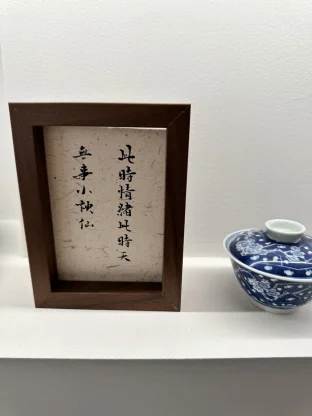 此時情緒此時天
無事小神仙